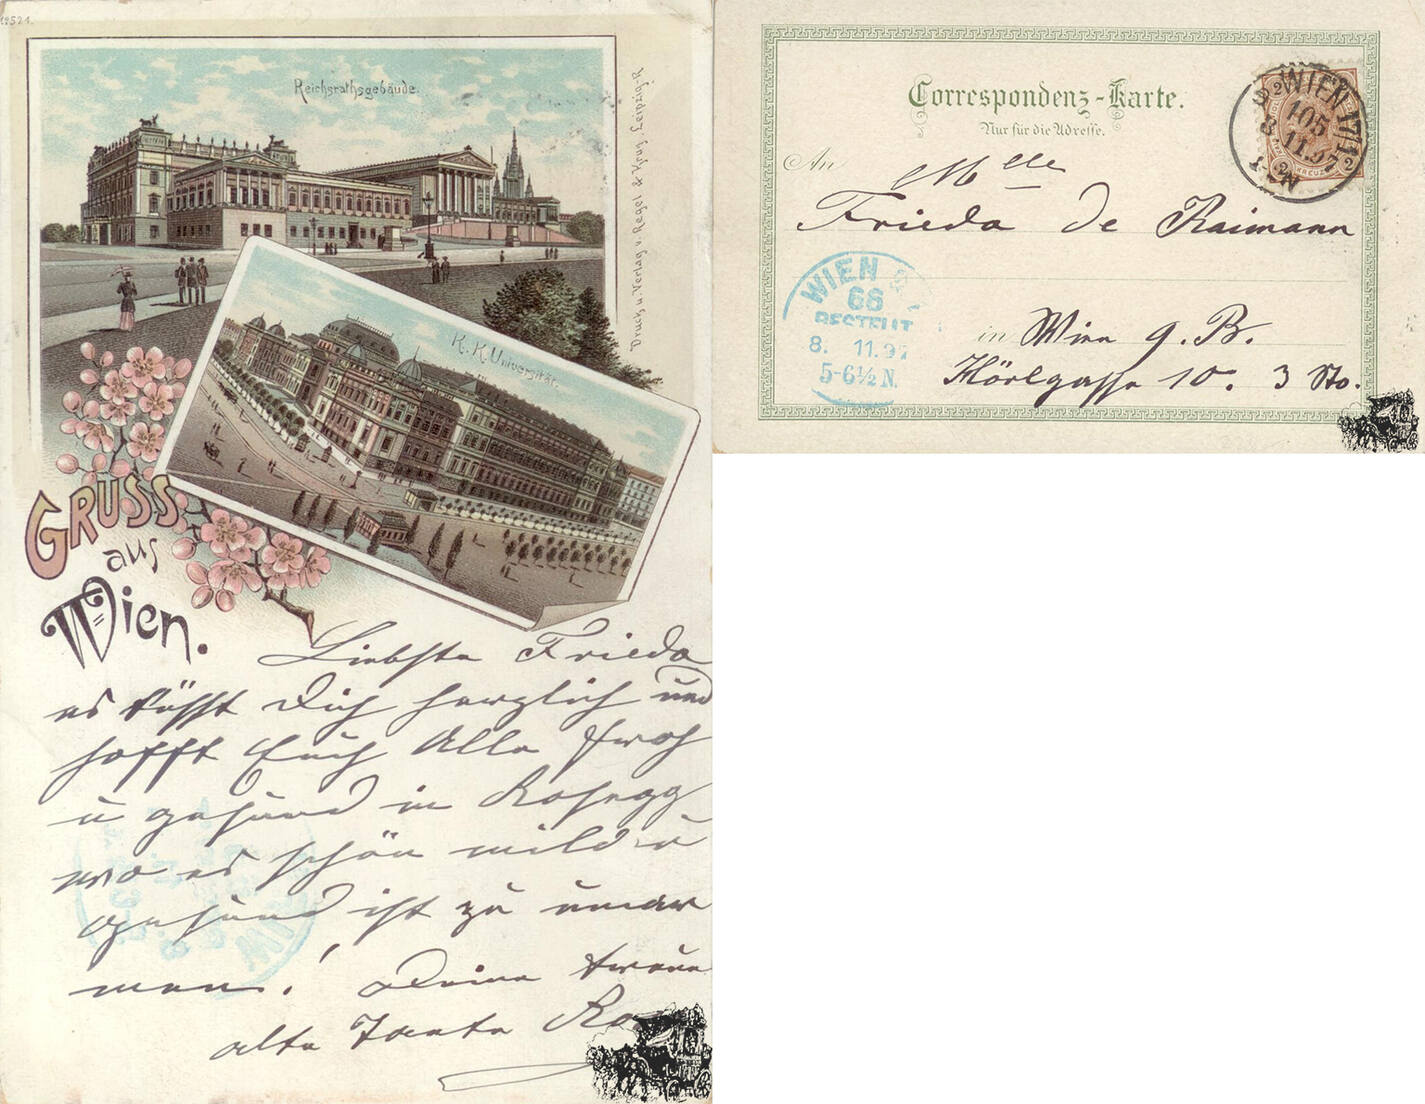 12521.
Reichsrathsgebäude.
Druck u. Verlag v. Regel & Krug, Leipzig-R.
K. K. Universität.
GRUSS
aus
Wien.
Liebste Frieda
es küsst Dich herzlich und
hofft Euch Alle froh
u gesund in Rosegg
wo es schön mild u
gesund ist zu umar
men! Deine treue
alte Tante
Correspondenz-Karte.
Nur für die Adresse.
An
Mlle
Frieda de Raimann
in Wien 9. B.
Hörlgasse 10. 3 Sto.
WIEN 17/1
105
8 11.97
WIEN
66
BESTELLT
8. 11.97
5-6½ N.
2
2
2